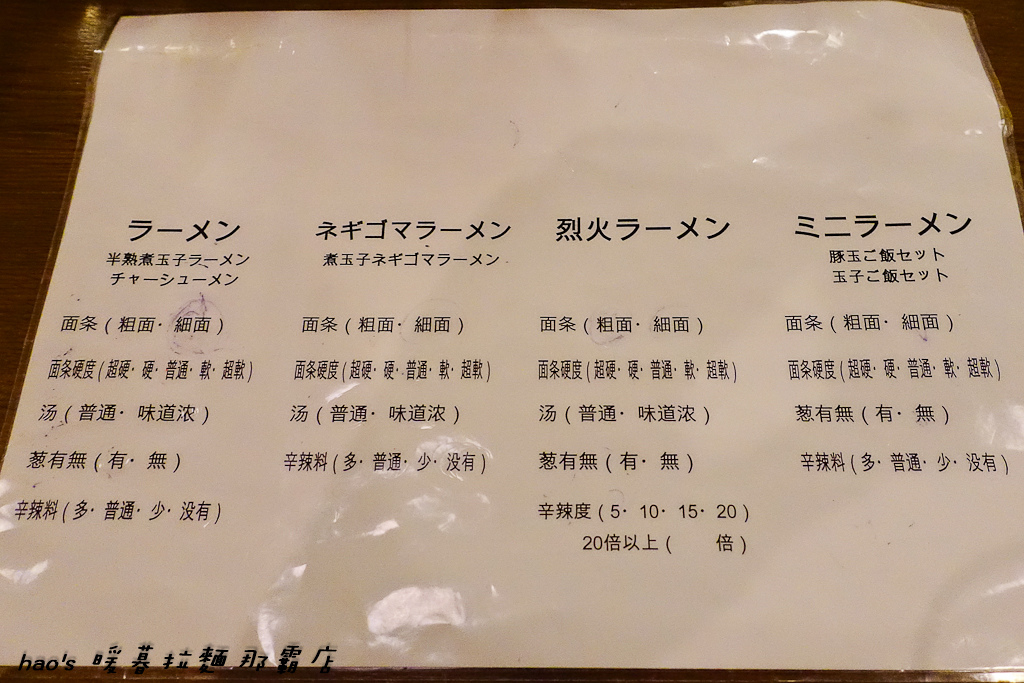 ラーメン
半熟煮玉子ラーメン
チャーシューメン
面条（粗面・細面）
面条硬度（超硬・硬・普通・軟・超軟）
汤（普通・味道浓）
葱有無（有・無）
辛辣料（多・普通・少・没有）
ネギゴマラーメン
煮玉子ネギゴマラーメン
面条（粗面・細面）
面条硬度（超硬・硬・普通・軟・超軟）
汤（普通・味道浓）
辛辣料（多・普通・少・没有）
烈火ラーメン
面条（粗面・細面）
面条硬度（超硬・硬・普通・軟・超軟）
汤（普通・味道浓）
葱有無（有・無）
辛辣度（5・10・15・20）
20倍以上（　　倍）
ミニラーメン
豚玉ご飯セット
玉子ご飯セット
面条（粗面・細面）
面条硬度（超硬・硬・普通・軟・超軟）
葱有無（有・無）
辛辣料（多・普通・少・没有）
hao's 暖暮拉麵那霸店